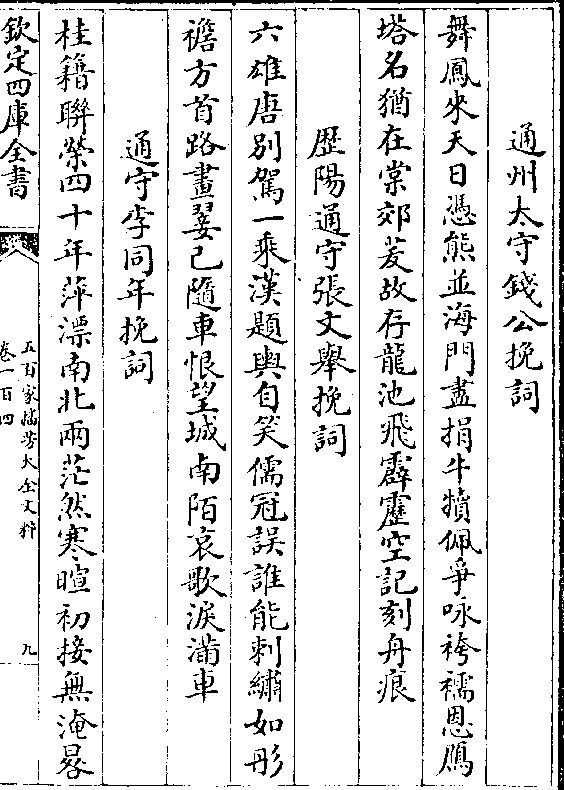 通州太守錢公挽詞
舞鳳來天日憑熊並海門盡捐牛犢佩爭咏袴襦恩鴈
塔名猶在棠郊茇故存龍池飛霹靂空記刻舟痕
歴陽通守張文舉挽詞
六雄唐别駕一乘漢題輿自笑儒冠誤誰能刺繡如彤
襜方首路畫翣已隨車恨望城南陌哀歌淚滿車
通守李同年挽詞
桂籍聯榮四十年萍漂南北兩茫然寒暄初接無淹晷
欽定四庫全書
五百家播芳大全文粹
卷一百四
九